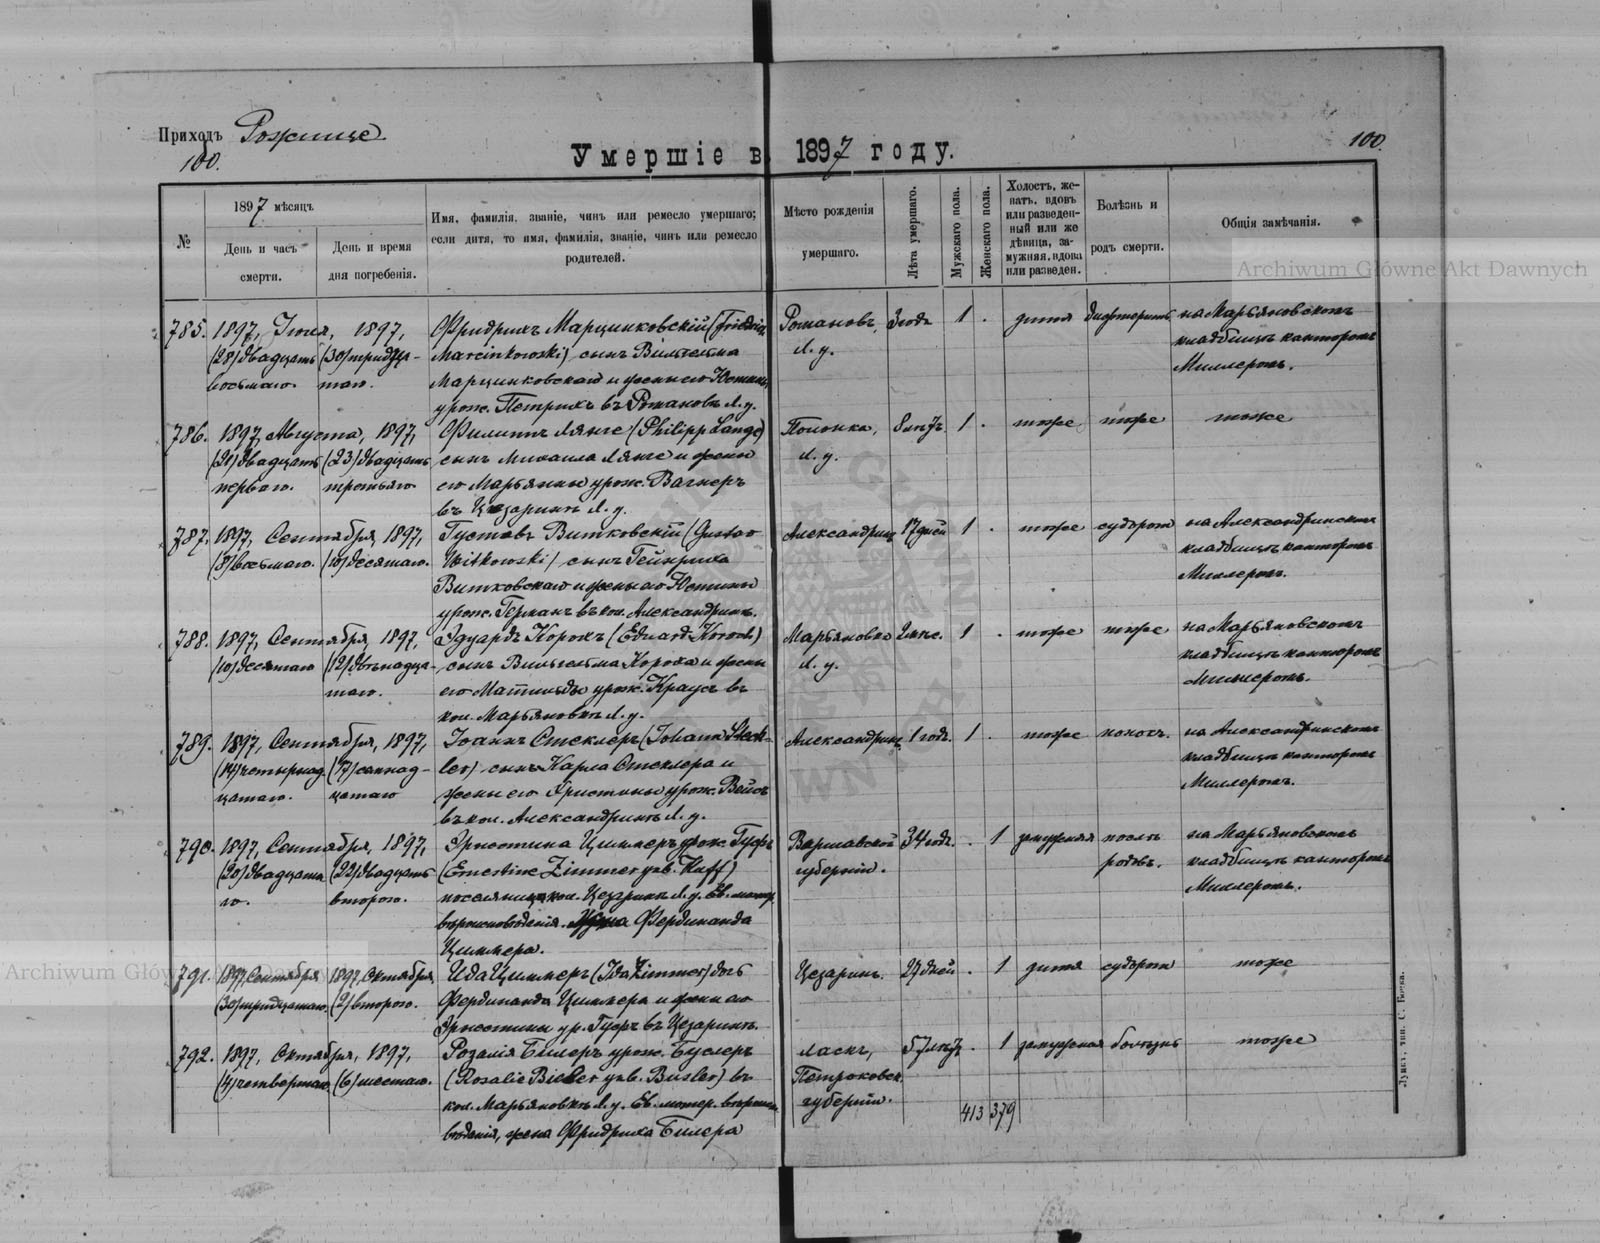 Приходъ Рожище
100.
Умершіе въ 1897 году.
100.
№
1897 мѣсяцъ
День и часъ
смерти.
День и время
дня погребенія.
Имя, фамилія, званіе, чинъ или ремесло умершаго;
если дитя, то имя, фамилія, званіе, чинъ или ремесло
родителей.
Мѣсто рожденія
умершаго.
Лѣта умершаго.
Мужскаго пола.
Женскаго пола.
Холостъ, же-
натъ, вдовъ
или разведен-
ный или же
дѣвица, за-
мужняя, вдова
или разведен.
Болѣзнь и
родъ смерти.
Общія замѣчанія.
Archiwum Główne Akt Dawnych
785. 1897, Іюля, 1897, Фридрихъ Марцинковскій (Friedrich Романовъ, 3 года 1 . дитя дифтеритъ на Марьяновскомъ
(28) двадцать (30) тридца- Marcinkowski) сынъ Вильгельма Л. у. кладбищѣ канторомъ
восьмаго. таго. Марцинковскаго и жены его Юстины, Миллеромъ.
урож. Петрихъ въ Романовѣ Л. у.
786. 1897, Августа, 1897, Филиппъ Лянге (Philipp Lange) Полонка, 8 лѣтъ 1 . тоже тоже тоже
(21) двадцать (23) двадцать сынъ Михаила Лянге и жены Л. у.
перваго. третьяго его Марьянны урож. Вагнеръ
въ Цезаринѣ Л. у.
787. 1897, Сентября, 1897, Густавъ Витковскій (Gustav Александринъ 17 дней 1 . тоже судороги на Александринскомъ
(8) восьмаго. (10) десятаго. Witkowski) сынъ Гейнриха кладбищѣ канторомъ
Витковскаго и жены его Юстины Миллеромъ.
урож. Германъ въ кол. Александринѣ.
788. 1897, Сентября, 1897, Эдуардъ Корохъ (Eduard Koroch) Марьяновка 2 мѣс. 1 . тоже тоже на Марьяновскомъ
(10) десятаго (12) двѣнадца- сынъ Вильгельма Короха и жены Л. у. кладбищѣ канторомъ
таго. его Матильды урож. Краусъ въ Миллеромъ.
кол. Марьяновкѣ Л. у.
789. 1897, Сентября, 1897, Іоаннъ Стеклеръ (Johann Steck- Александринъ 1 годъ 1 . тоже поносъ. на Александринскомъ
(14) четырнад (17) семнад- ler) сынъ Карла Стеклера и кладбищѣ канторомъ
цатаго. цатаго жены его Христины урож. Вейсъ Миллеромъ.
въ кол. Александринѣ Л. у.
790. 1897, Сентября, 1897, Эрнестина Циммеръ урож. Гуфъ Варшавской 34 года. . 1 замужняя послѣ на Марьяновскомъ
(20) двадцата (22) двадцать (Ernestine Zimmer geb. Huff) губерніи. родовъ. кладбищѣ канторомъ
го. второго. поселянка кол. Цезаринъ Л. у. Ев. лютер. Миллеромъ.
вѣроисповѣданія. Жена Фердинанда
Циммера.
Archiwum Główne Akt Dawnych
791. 1897, Сентября 1897, Октября, Ида Циммеръ (Ida Zimmer) дочь Цезаринъ. 27 дней . 1 дитя судороги тоже
(30) тридцатаго. (2) второго. Фердинанда Циммера и жены его
Эрнестины ур. Гуфъ въ Цезаринѣ.
792. 1897, Октября, 1897, Розалія Билеръ урож. Буслеръ Ласкъ, 57 лѣтъ . 1 замужняя болѣзнь тоже
(4) четвертаго (6) шестаго. (Rosalie Bieler geb. Busler) въ Петроковск.
кол. Марьяновкѣ Л. у. Ев. лютер. вѣроиспо- губерніи. 413 379
вѣданія, жена Фридриха Билера